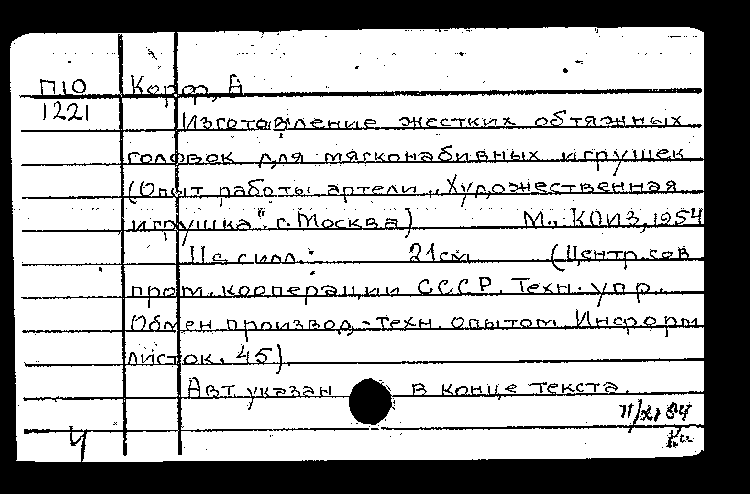 П10 Корф, А
1221 Изготовление жестких обтяжных
головок для мягконабивных игрушек
(Опыт работы артели „Художественная
игрушка" г. Москва) М., КОИЗ, 1954
11с. с илл.; 21см (Центр. сов
пром. кооперации СССР. Техн. упр.
Обмен производ.-техн. опытом. Информ
листок. 45).
Авт. указан в конце текста.
4